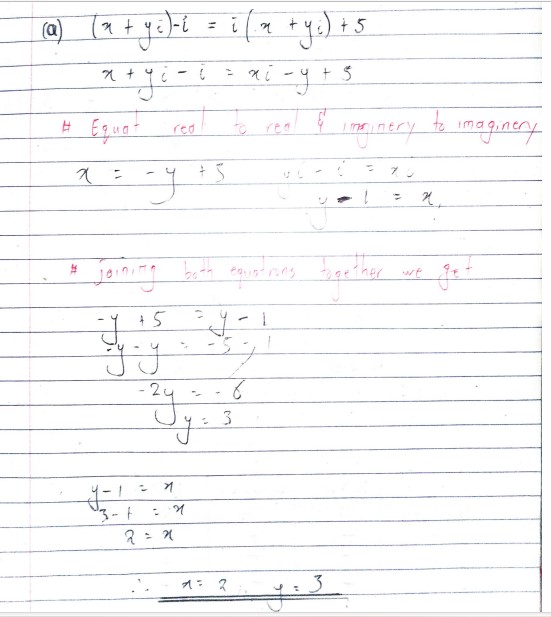 (a) (x + yi) - i = i(x + yi) + 5
x + yi - i = xi - y + 5
# Equat real to real & imginery to imaginery
x = -y + 5 yi - i = xi
y - 1 = x.
# joining both equations together we get
-y + 5 = y - 1
-y - y = -5 - 1
-2y = -6
y = 3
y - 1 = x
3 - 1 = x
2 = x
∴ x = 2. y = 3